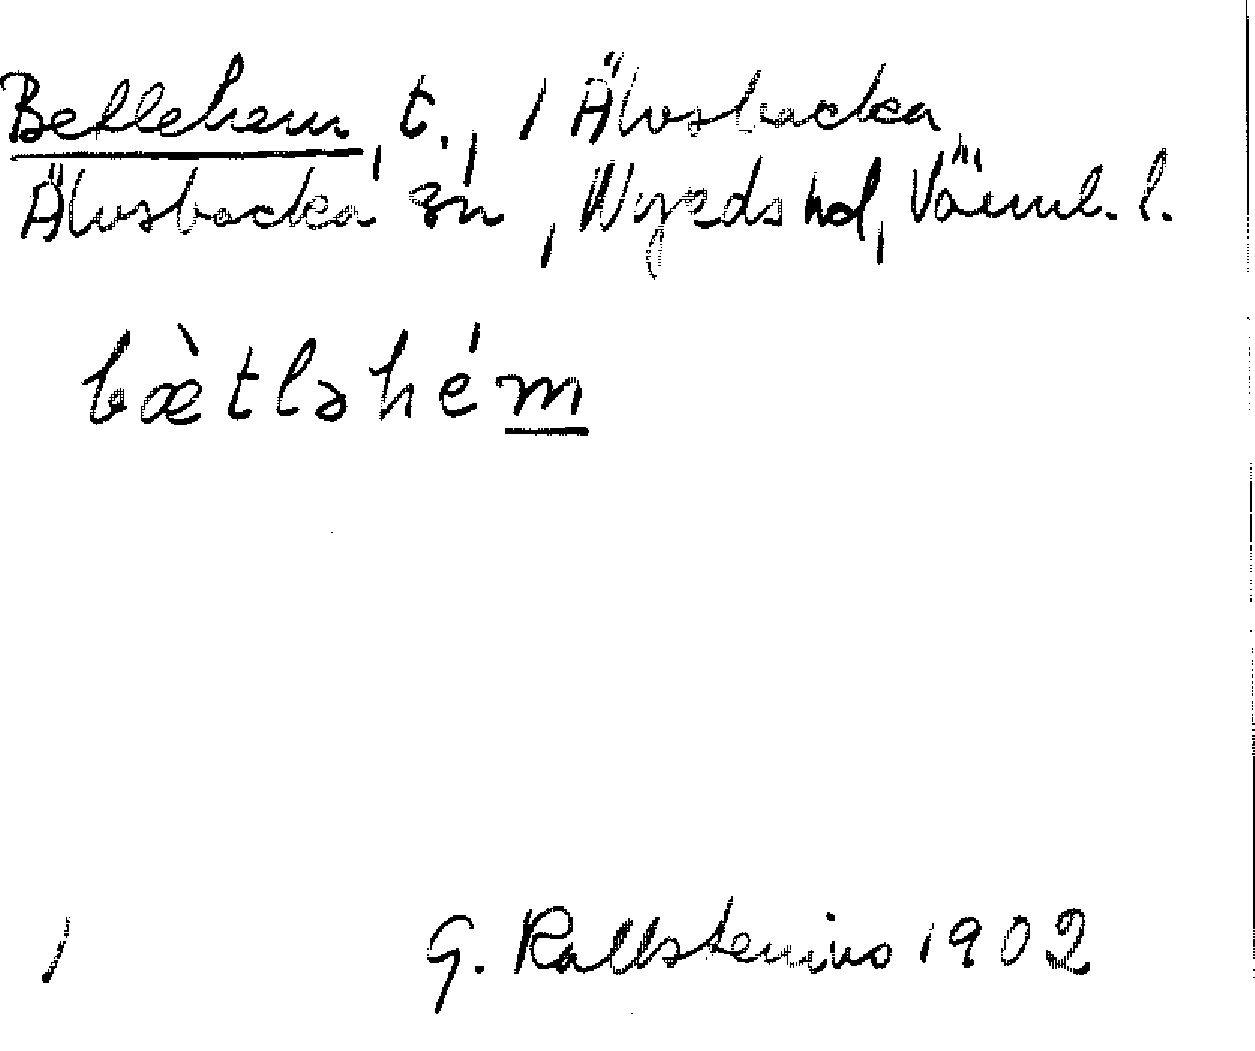 Betlehem, t., / Älvsbacka,
Älvsbacka sn, Nyeds hd, Värml. l.
bæ̀tləhém
/ G. Kallstenius 1902